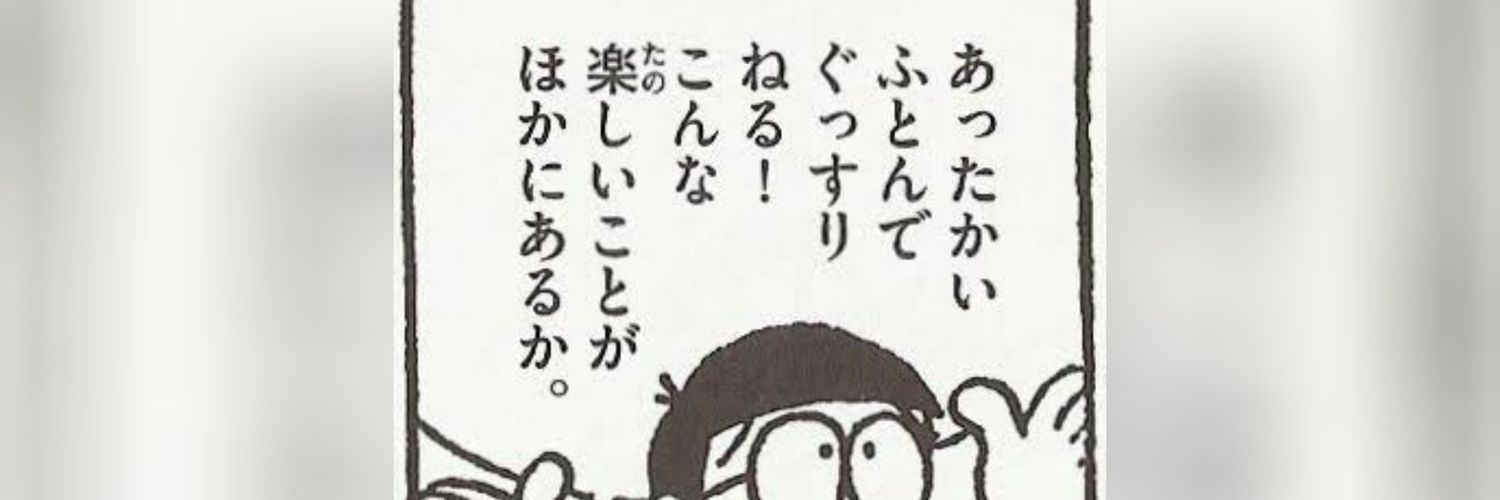 あったかい
ふとんで
ぐっすり
ねる！
こんな
楽しいことが
ほかにあるか。
たの